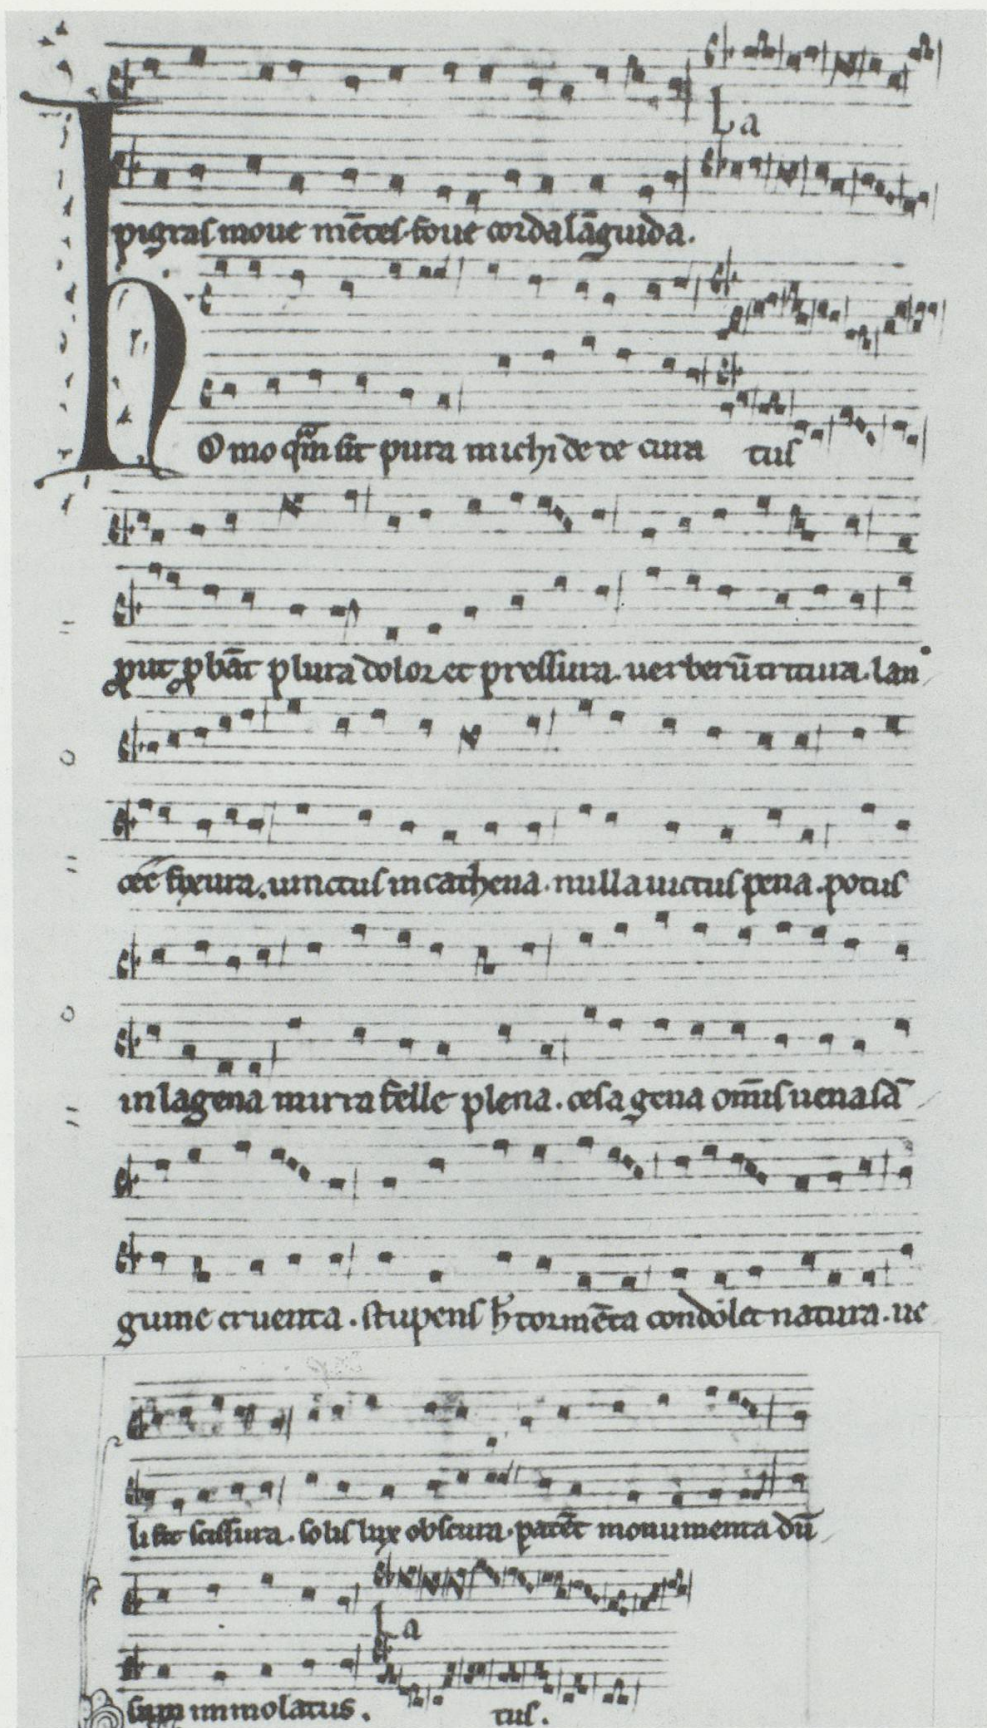 La
pigras moue mētes. foue corda lāguida.
Homo quam sit pura michi de te cura tus
prout probāt plura dolor et pressura. uerberū tritura. lan
cee fixura. uinctus in cathena. nulla uictus pena. potus
in lagena mirra felle plena. cesa gena om̄is uena sā
guine cruenta. stupens h̄ tormēta condolet natura. ue
li fit scissura. solis lux obscura. patēt monumenta dū
La
sum immolatus. tus.